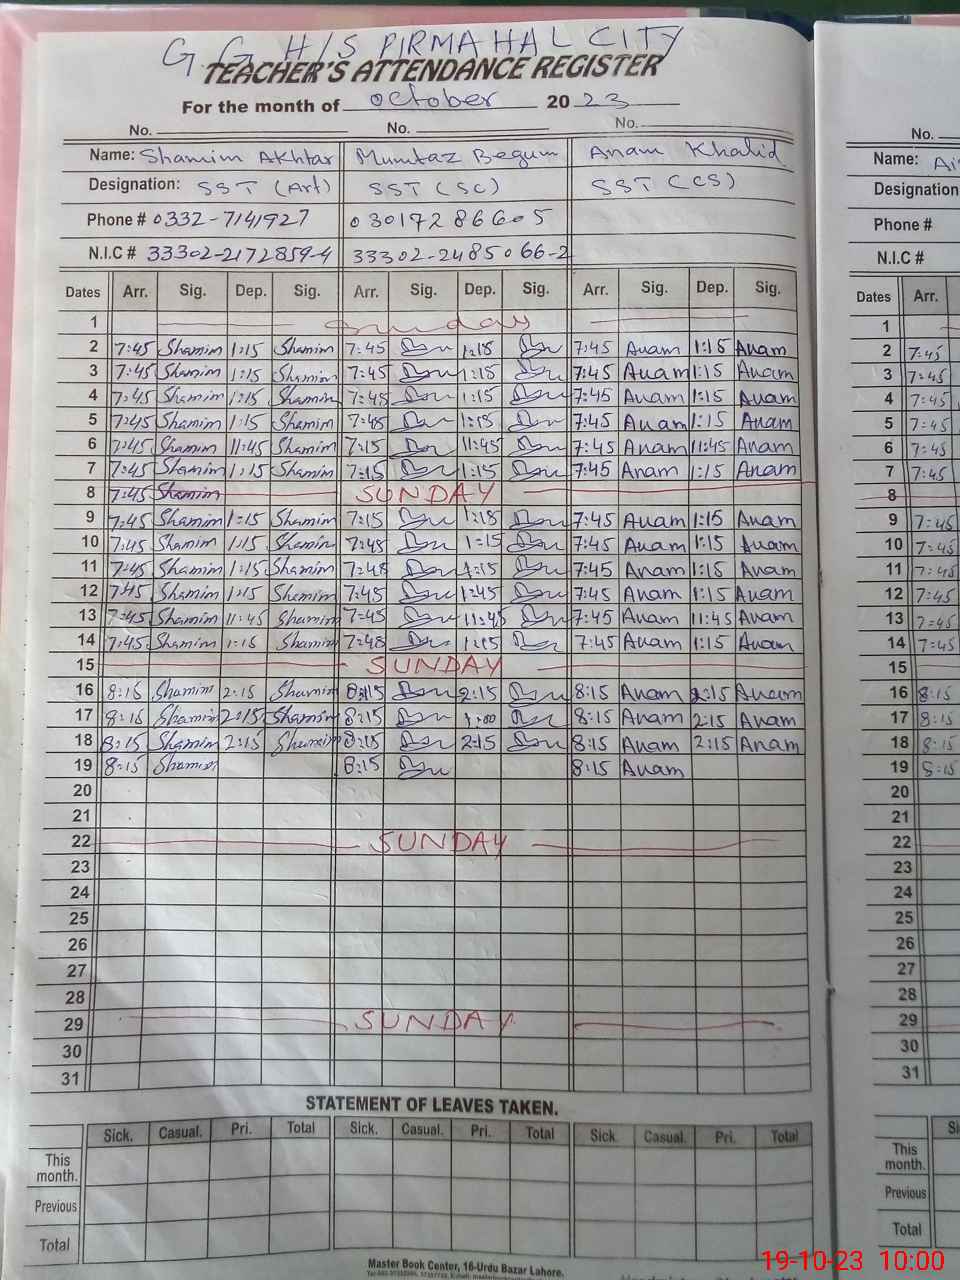 G G H/S PIRMAHAL CITY
TEACHER'S ATTENDANCE REGISTER
For the month of October 2023
No. No. No. No.
Name: Shamim Akhtar Mumtaz Begum Anam Khalid Name:
Designation: SST (Art) SST (SC) SST (CS) Designation
Phone # 0332-7141927 03017286605 Phone #
N.I.C # 33302-2172859-4 33302-2485066-2 N.I.C #
Dates Arr. Sig. Dep. Sig. Arr. Sig. Dep. Sig. Arr. Sig. Dep. Sig. Dates Arr.
1 Sunday 1
2 7:45 Shamim 1:15 Shamim 7:45 1:15 7:45 Anam 1:15 Anam 2 7:45
3 7:45 Shamim 1:15 Shamim 7:45 1:15 7:45 Anam 1:15 Anam 3 7:45
4 7:45 Shamim 1:15 Shamim 7:45 1:15 7:45 Anam 1:15 Anam 4 7:45
5 7:45 Shamim 1:15 Shamim 7:45 1:15 7:45 Anam 1:15 Anam 5 7:45
6 7:45 Shamim 11:45 Shamim 7:15 11:45 7:45 Anam 11:45 Anam 6 7:45
7 7:45 Shamim 1:15 Shamim 7:15 1:15 7:45 Anam 1:15 Anam 7 7:45
8 7:45 Shamim SUNDAY 8
9 7:45 Shamim 1:15 Shamim 7:15 1:15 7:45 Anam 1:15 Anam 9 7:45
10 7:45 Shamim 1:15 Shamim 7:45 1:15 7:45 Anam 1:15 Anam 10 7:45
11 7:45 Shamim 1:15 Shamim 7:45 1:15 7:45 Anam 1:15 Anam 11 7:45
12 7:45 Shamim 1:15 Shamim 7:45 1:45 7:45 Anam 1:15 Anam 12 7:45
13 7:45 Shamim 11:45 Shamim 7:45 11:45 7:45 Anam 11:45 Anam 13 7:45
14 7:45 Shamim 1:15 Shamim 7:45 1:15 7:45 Anam 1:15 Anam 14 7:45
15 SUNDAY 15
16 8:15 Shamim 2:15 Shamim 8:15 2:15 8:15 Anam 2:15 Anam 16 8:15
17 8:15 Shamim 2:15 Shamim 8:15 1:00 8:15 Anam 2:15 Anam 17 8:15
18 8:15 Shamim 2:15 Shamim 8:15 2:15 8:15 Anam 2:15 Anam 18 8:15
19 8:15 Shamim 8:15 8:15 Anam 19 8:15
20 20
21 21
22 SUNDAY 22
23 23
24 24
25 25
26 26
27 27
28 28
29 SUNDAY 29
30 30
31 31
STATEMENT OF LEAVES TAKEN.
Sick. Casual. Pri. Total Sick. Casual. Pri. Total Sick. Casual. Pri. Total
This month. This month.
Previous Previous
Total Total
Master Book Center, 16-Urdu Bazar Lahore.
19-10-23 10:00